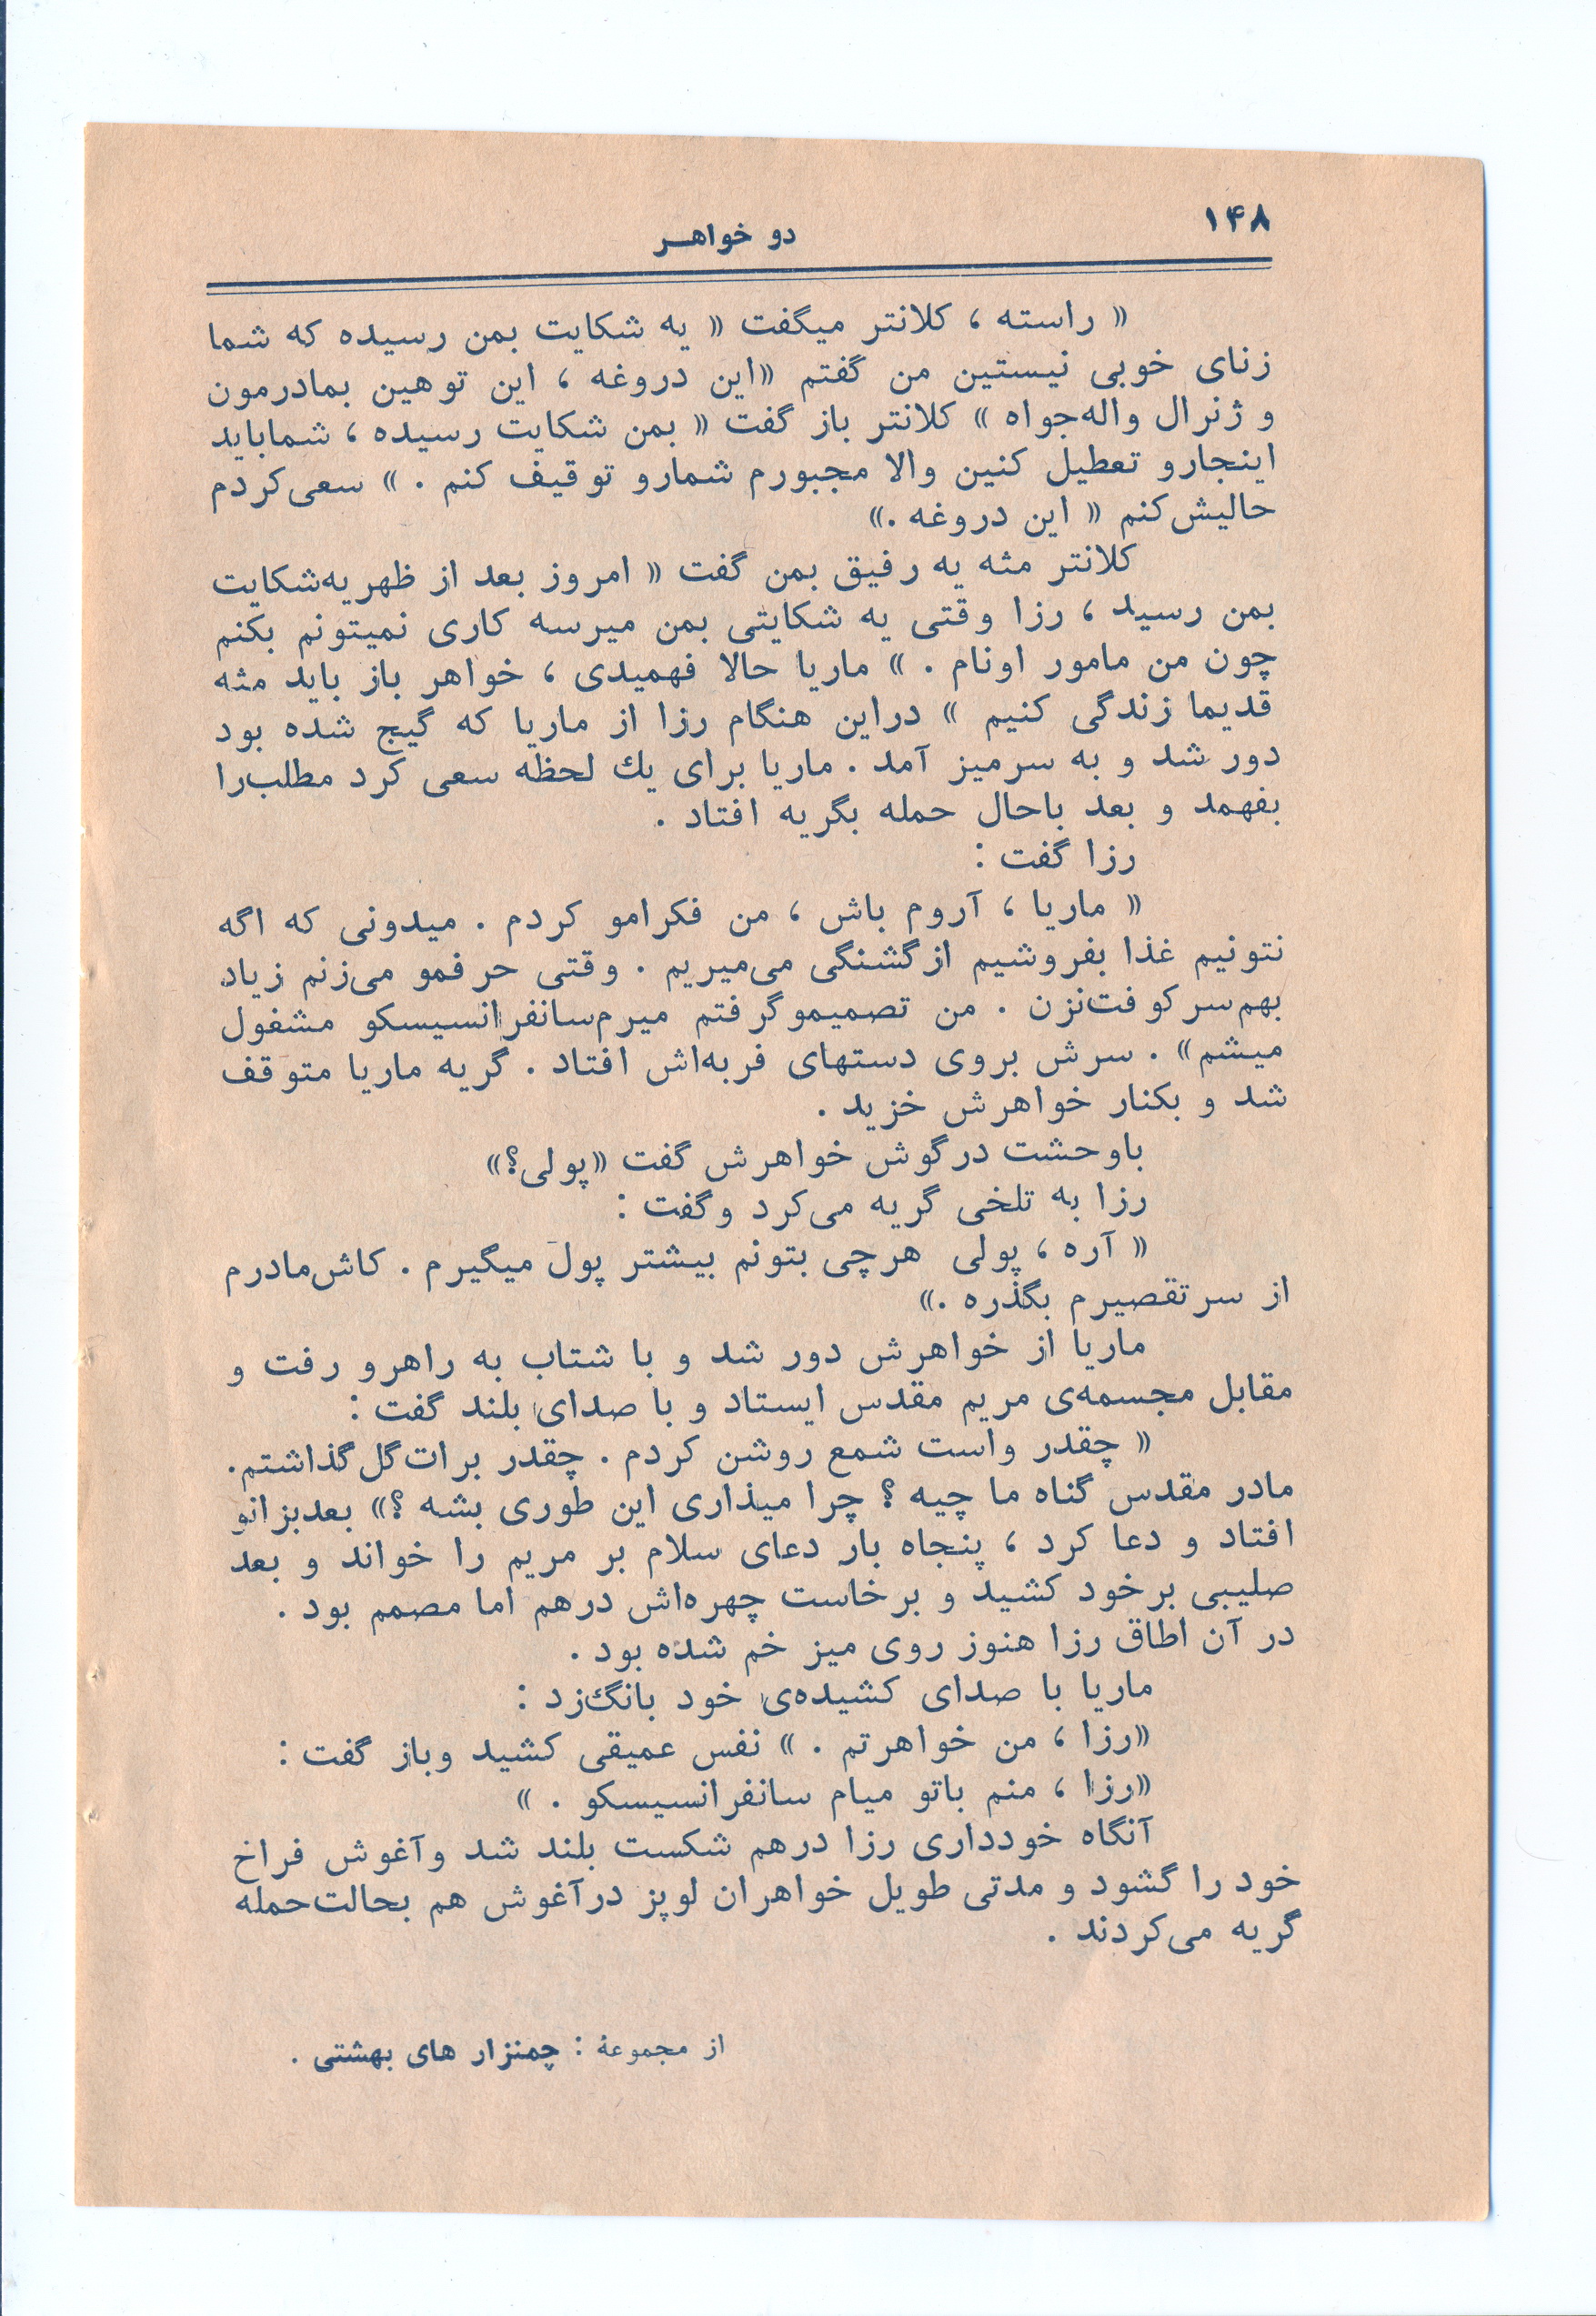 ۱۴۸
دو خواهر
« راسته ، کلانتر میگفت « یه شکایت بمن رسیده که شما
زنای خوبی نیستین من گفتم «این دروغه ، این توهین بمادرمون
و ژنرال واله‌جواه » کلانتر باز گفت « بمن شکایت رسیده ، شماباید
اینجارو تعطیل کنین والا مجبورم شمارو توقیف کنم . » سعی‌کردم
حالیش‌کنم « این دروغه .»
کلانتر مثه یه رفیق بمن گفت « امروز بعد از ظهریه‌شکایت
بمن رسید ، رزا وقتی یه شکایتی بمن میرسه کاری نمیتونم بکنم
چون من مامور اونام . » ماریا حالا فهمیدی ، خواهر باز باید مثه
قدیما زندگی کنیم » دراین هنگام رزا از ماریا که گیج شده بود
دور شد و به سرمیز آمد . ماریا برای یك لحظه سعی کرد مطلب‌را
بفهمد و بعد باحال حمله بگریه افتاد .
رزا گفت :
« ماریا ، آروم باش ، من فکرامو کردم . میدونی که اگه
نتونیم غذا بفروشیم ازگشنگی می‌میریم . وقتی حرفمو می‌زنم زیاد
بهم‌سرکوفت‌نزن . من تصمیموگرفتم میرم‌سانفرانسیسکو مشغول
میشم» . سرش بروی دستهای فربه‌اش افتاد . گریه ماریا متوقف
شد و بکنار خواهرش خزید .
باوحشت درگوش خواهرش گفت «پولی؟»
رزا به تلخی گریه می‌کرد وگفت :
« آره ، پولی هرچی بتونم بیشتر پول میگیرم . کاش‌مادرم
از سرتقصیرم بگذره .»
ماریا از خواهرش دور شد و با شتاب به راهرو رفت و
مقابل مجسمه‌ی مریم مقدس ایستاد و با صدای بلند گفت :
« چقدر واست شمع روشن کردم . چقدر برات‌گل‌گذاشتم.
مادر مقدس گناه ما چیه ؟ چرا میذاری این طوری بشه ؟» بعدبزانو
افتاد و دعا کرد ، پنجاه بار دعای سلام بر مریم را خواند و بعد
صلیبی برخود کشید و برخاست چهره‌اش درهم اما مصمم بود .
در آن اطاق رزا هنوز روی میز خم شده بود .
ماریا با صدای کشیده‌ی خود بانگ‌زد :
«رزا ، من خواهرتم . » نفس عمیقی کشید وباز گفت :
«رزا ، منم باتو میام سانفرانسیسکو . »
آنگاه خودداری رزا درهم شکست بلند شد وآغوش فراخ
خود را گشود و مدتی طویل خواهران لوپز درآغوش هم بحالت‌حمله
گریه می‌کردند .
از مجموعهٔ : چمنزار های بهشتی .